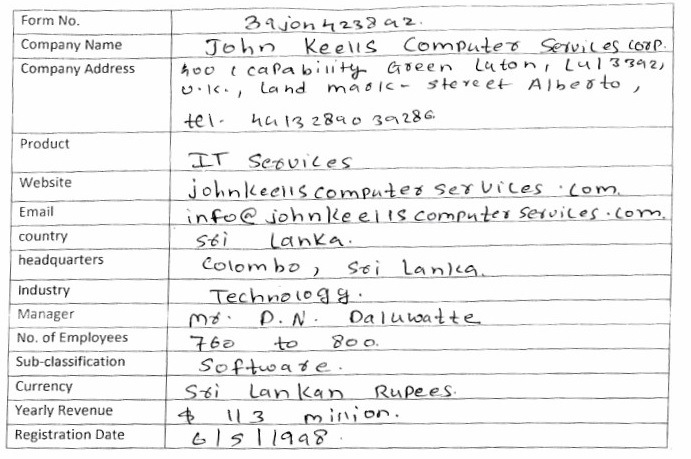 Form No. 39jon423892.
Company Name John Keells Computer Services Corp.
Company Address 400 capability Green Luton, LU13392,
U.K., Land mark- stereet Alberto,
tel. 4413289039286
Product IT Services
Website johnkeellscomputerservices.com.
Email info@johnkeellscomputerservices.com.
country Sri Lanka.
headquarters Colombo, Sri Lanka.
Industry Technology.
Manager Mr. D.N. Daluwatte
No. of Employees 760 to 800.
Sub-classification Software.
Currency Sri Lankan Rupees.
Yearly Revenue $ 113 million.
Registration Date 6/5/1998.